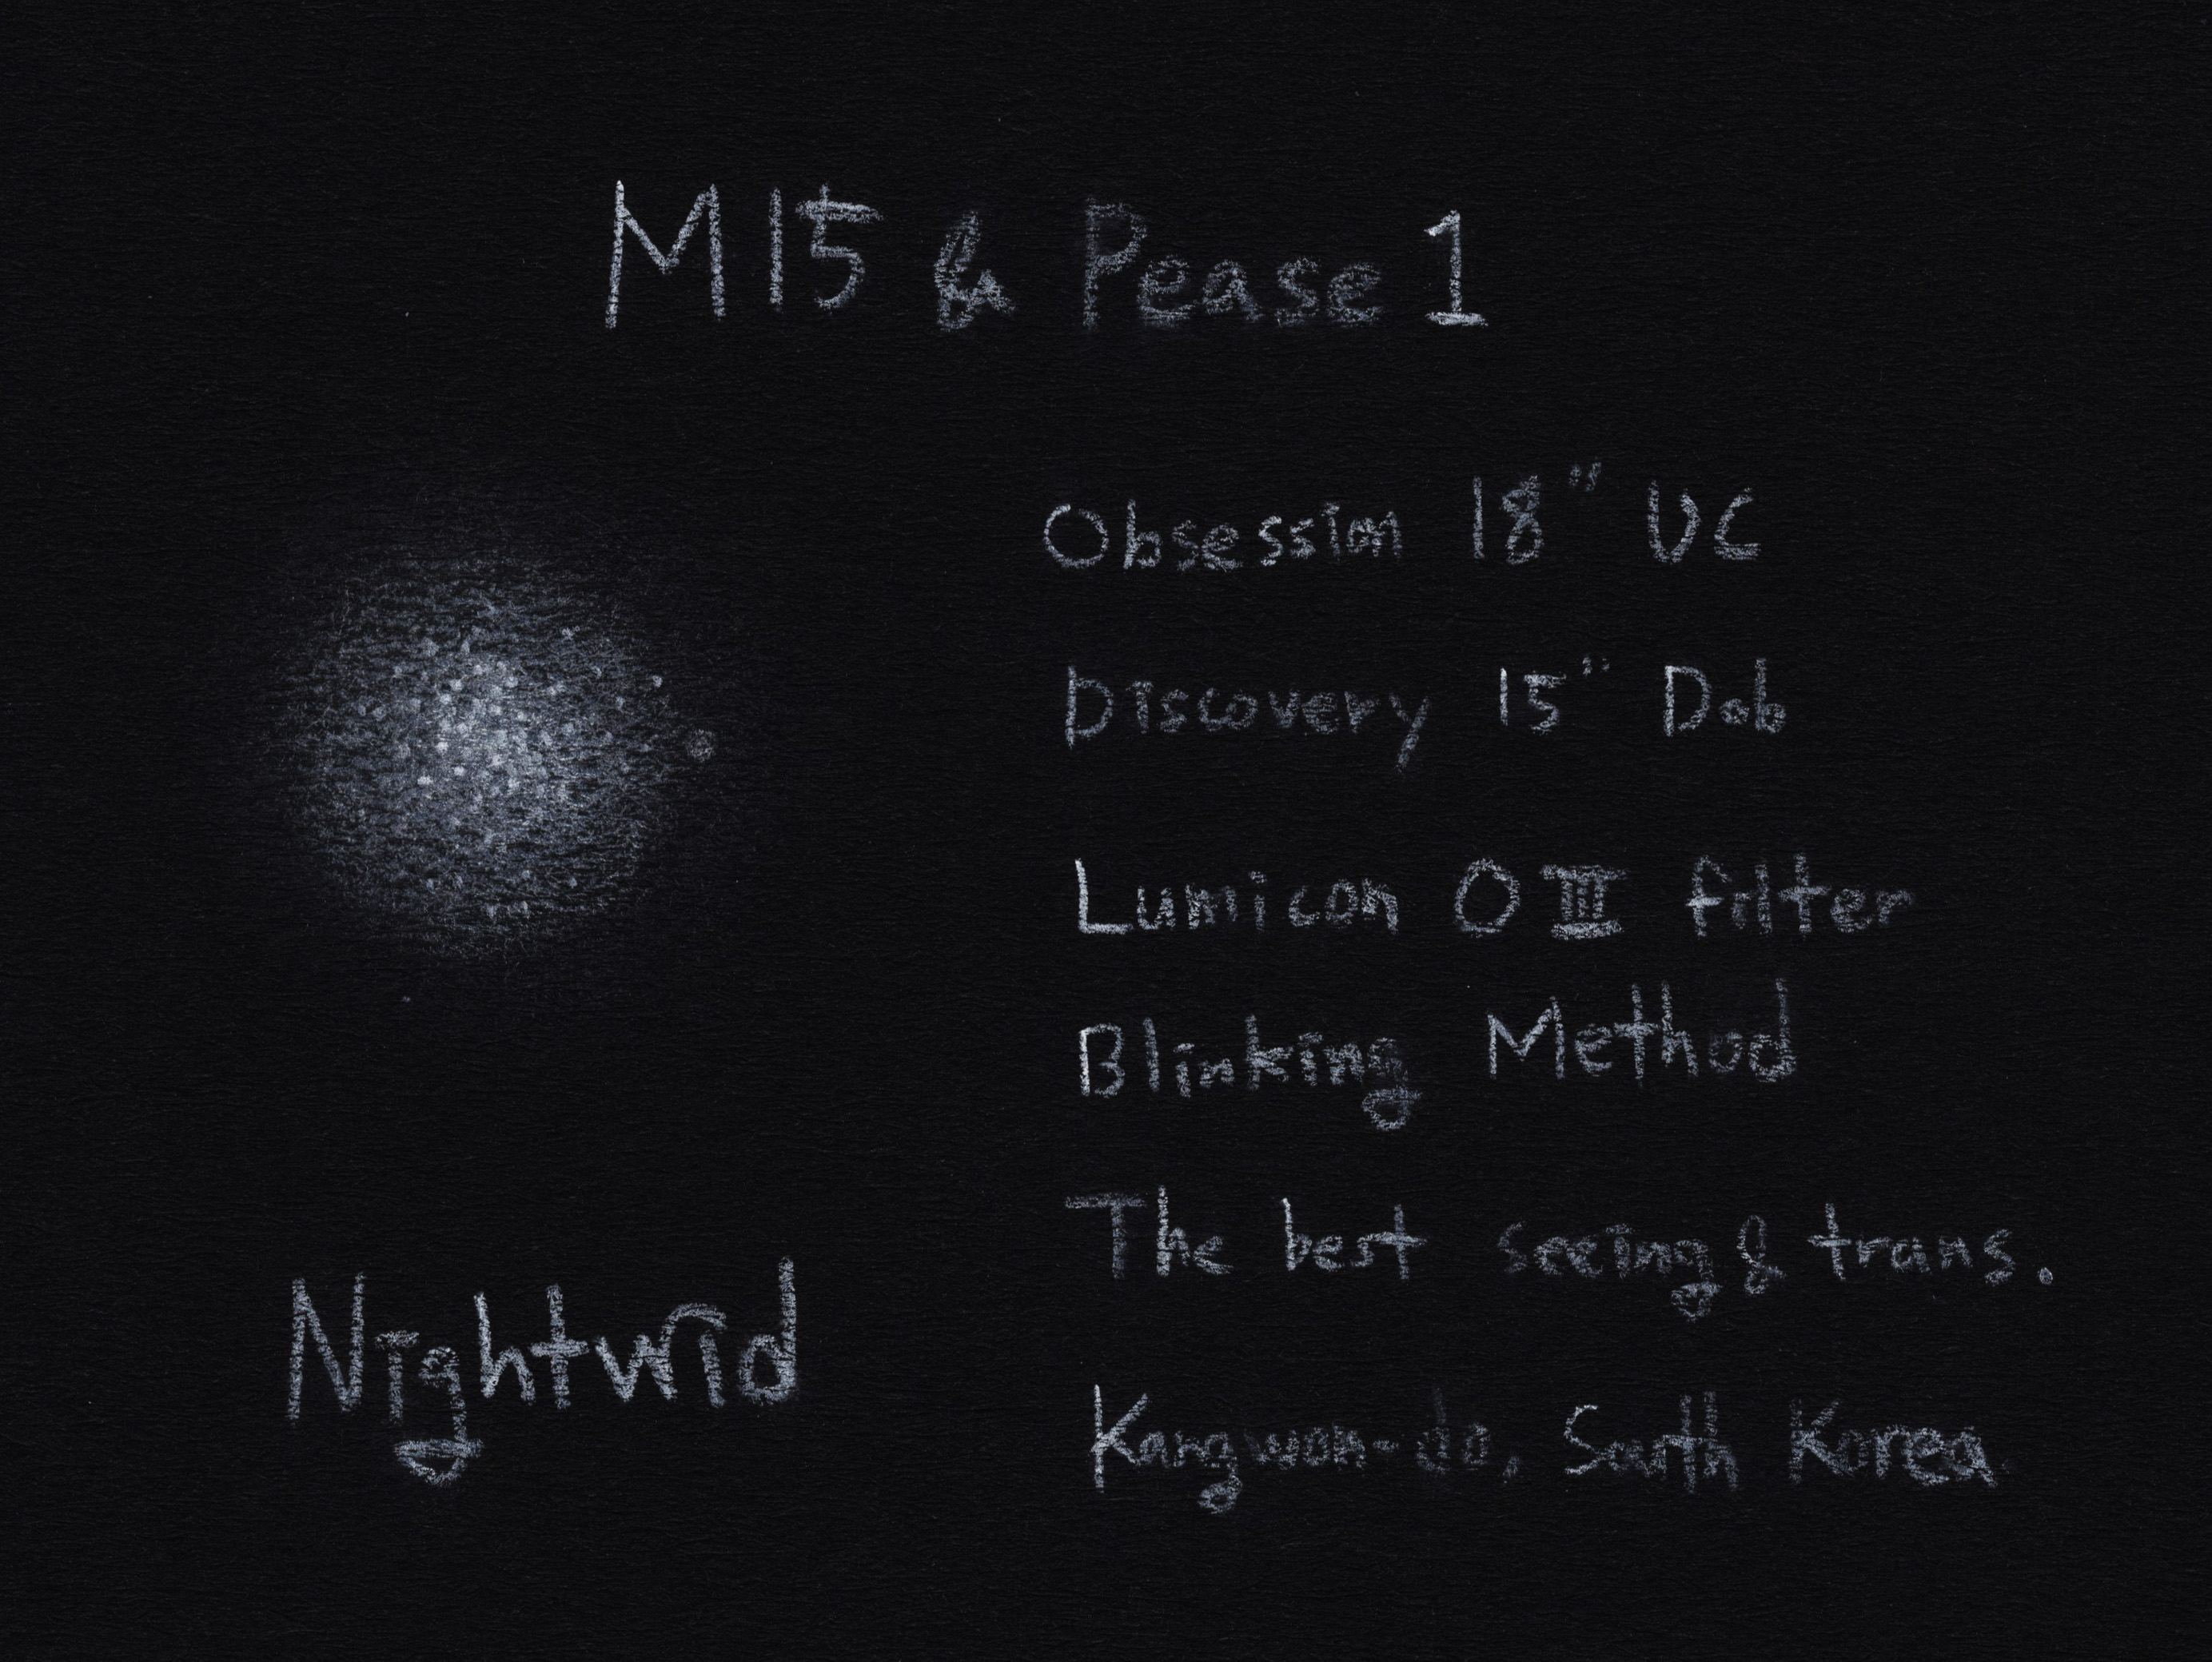 M15 & Pease 1
Obsession 18" UC
Discovery 15" Dob
Lumicon O III filter
Blinking Method
The best seeing & trans.
Nightwid
Kangwon-do, South Korea